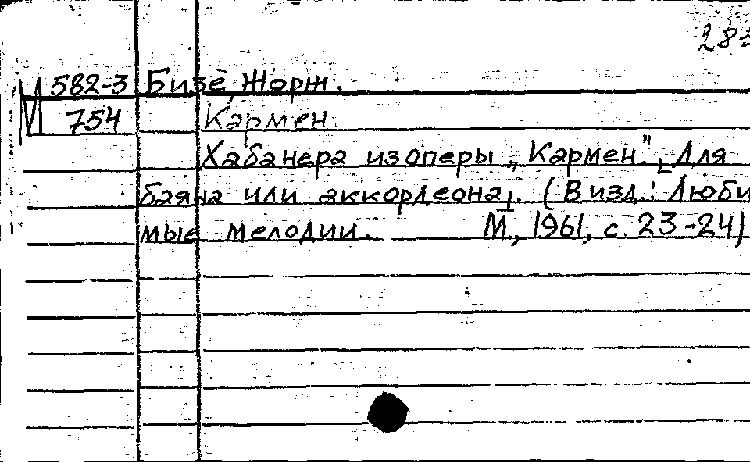 283
И 582-3 Бизе, Жорж.
754 Кармен.
Хабанера из оперы „Кармен" [для
баяна или аккордеона]. (В изд.: Люби
мые мелодии. М., 1961, с. 23-24)